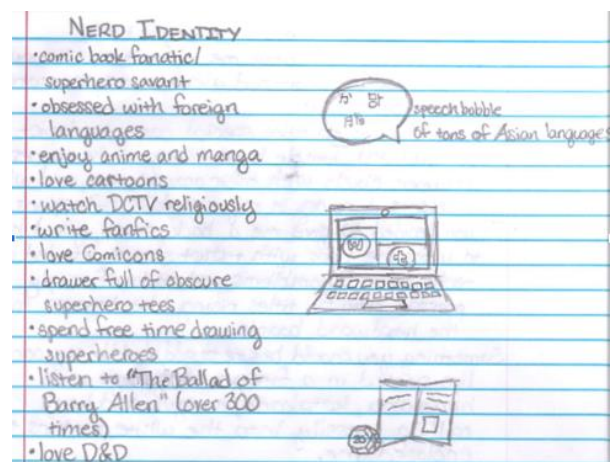 NERD IDENTITY
•comic book fanatic/
superhero savant
•obsessed with foreign
languages
•enjoy anime and manga
•love cartoons
•watch DCTV religiously
•write fanfics
•love Comicons
•drawer full of obscure
superhero tees
•spend free time drawing
superheroes
•listen to "The Ballad of
Barry Allen" (over 300
times)
•love D&D
か 맘
speech bobble
of tons of Asian languages
W
20